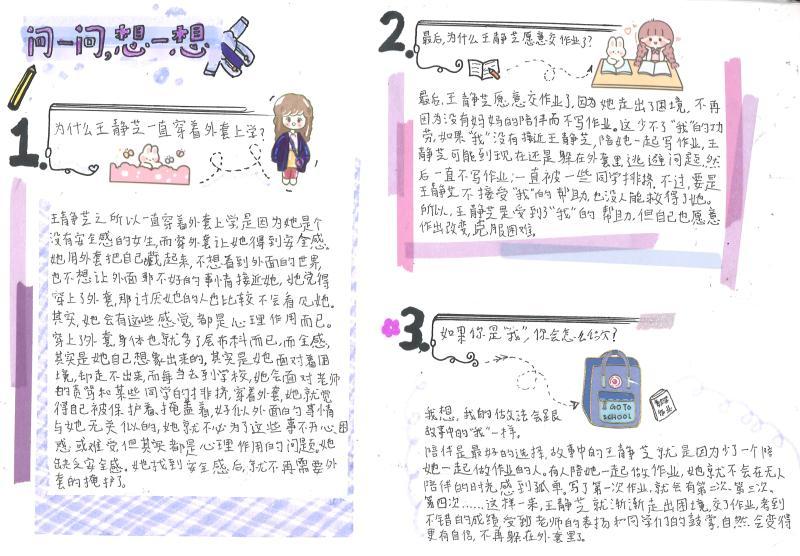 问一问,想一想
1.
为什么王静芝一直穿着外套上学?
王静芝之所以一直穿着外套上学,是因为她是个
没有安全感的女生,而穿外套让她得到安全感。
她用外套把自己藏起来,不想看到外面的世界,
也不想让外面那不好的事情接近她,她觉得
穿上了外套,那讨厌她的人也比较不会看见她。
其实,她会有这些感觉,都是心理作用而已。
穿上了外套,身体也就多了层布料而已,而全感,
其实是她自己想象出来的,其实是她面对着困
境,却走不出来,而每当去到学校,她会面对老师
的责骂和某些同学的排挤,穿着外套,她就觉
得自己被保护着、掩盖着,好似外面的事情
与她无关似的,她就不必为了这些事不开心、困
惑或难受,但其实都是心理作用的问题。她
缺乏安全感,她找到安全感后,就不再需要外
套的掩护了。
2.
最后,为什么王静芝愿意交作业了?
最后,王静芝愿意交作业了,因为她走出了困境,不再
因为没有妈妈的陪伴而不写作业。这少不了“我”的功
劳,如果“我”没有接近王静芝,陪她一起写作业,王
静芝可能到现在还是躲在外套里,逃避问题,然
后一直不写作业,一直被一些同学排挤。不过,要是
王静芝不接受“我”的帮助,也没人能救得了她。
所以,王静芝是受到了“我”的帮助,但自己也愿意
作出改变,克服困难。
3.
如果你是“我”,你会怎么做?
GO TO
SCHOOL
我想,我的做法会跟
故事中的“我”一样。
陪伴是最好的选择,故事中的王静芝就是因为少了一个陪
她一起做作业的人。有人陪她一起做作业,她就不会在无人
陪伴的时光感到孤单。写了第一次作业,就会有第二次、第三次、
第四次……这样一来,王静芝就渐渐走出困境,交了作业,考到
不错的成绩,受到老师的表扬和同学们的鼓掌,自然会变得
更有自信,不再躲在外套里了。